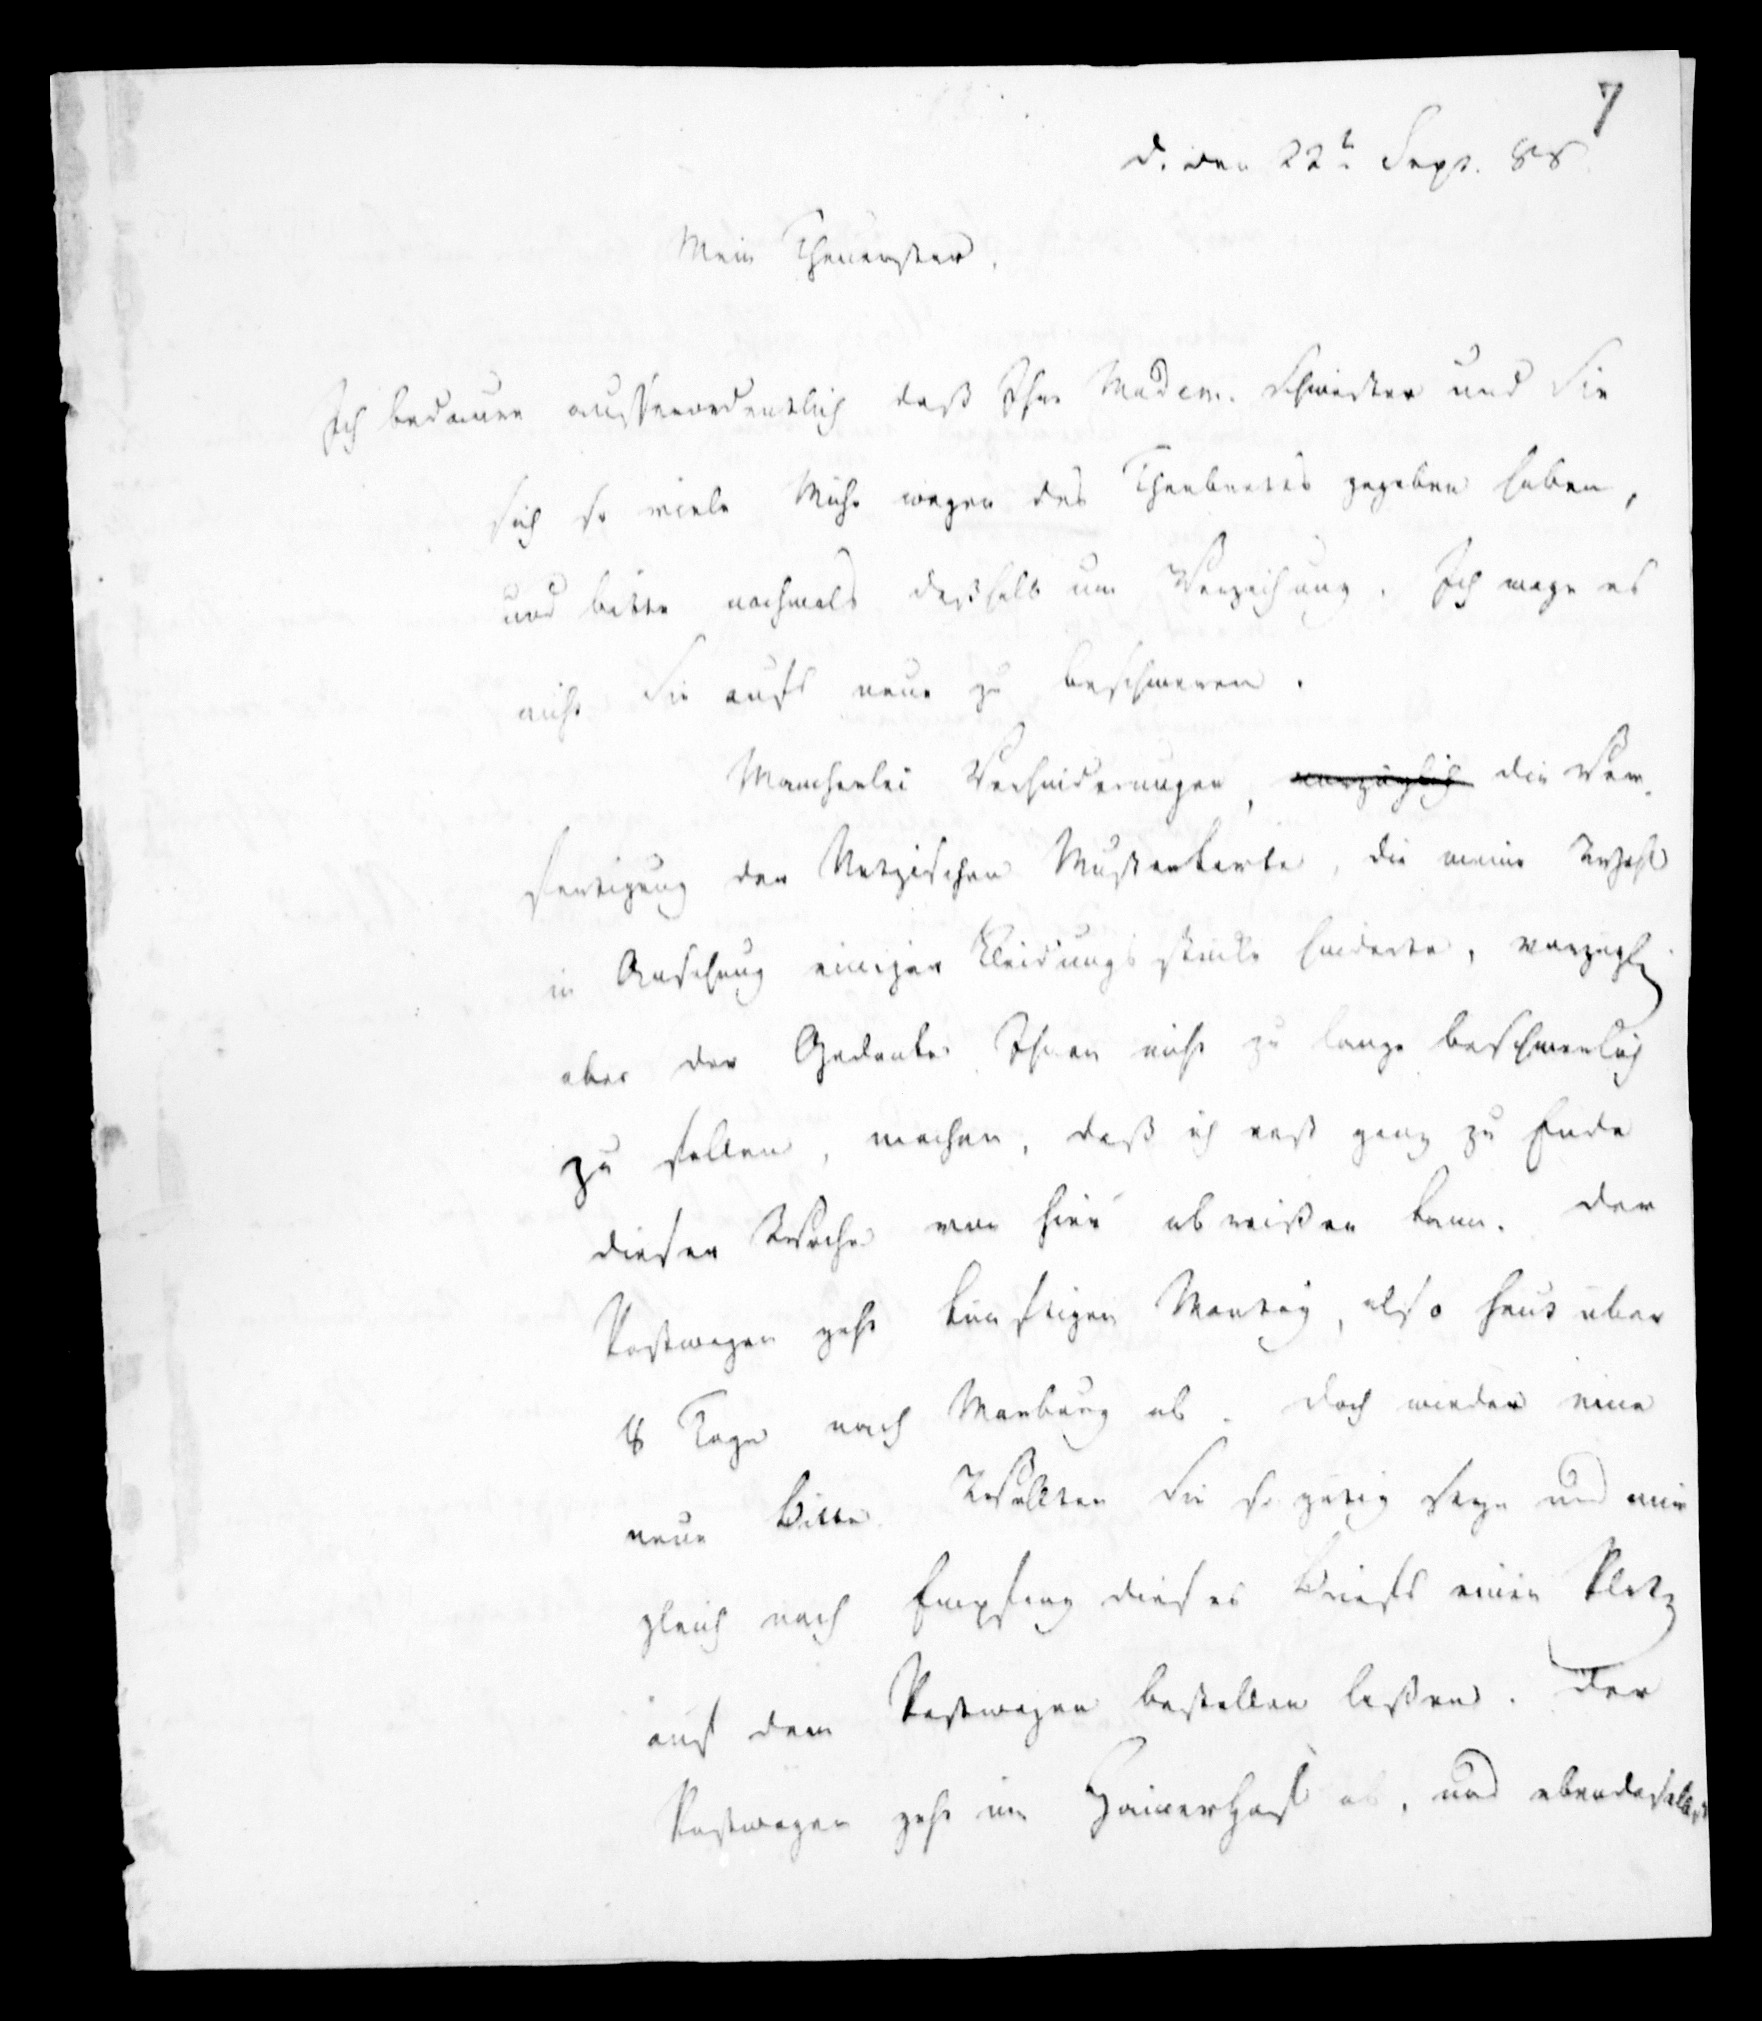 7
D. den 22t. Sept. 88
Mein Theuerster.
Ich bedaure ausserordentlich daß Ihre Madem. Schwester und Sie
sich so viele Mühe wegen des Theebrets gegeben haben,
und bitte nochmals deßhalb um Verzeihung. Ich wage es
nicht Sie aufs neue zu beschweren.
Mancherlei Verhinderungen, vorzüglich die Ver-
fertigung der Netzischen Musterkarte, die meine Wahl
in Ansehung einiger Kleidungsstücke hinderte, vorzügl.
aber der Gedanke Ihnen nicht zu lange beschwerlich
zu fallen, machen, daß ich erst ganz zu Ende
dieser Woche von hier abreißen kann. Der
Postwagen geht künftigen Montag, also heut über
8 Tage nach Marburg ab. Doch wieder eine
neue Bitte. Wollten Sie so gütig seyn und mir
gleich nach Empfang dieses Briefs einen Platz
auf dem Postwagen bestellen laßen. Der
Postwagen geht im Hainerhof ab, und ebendaselbst